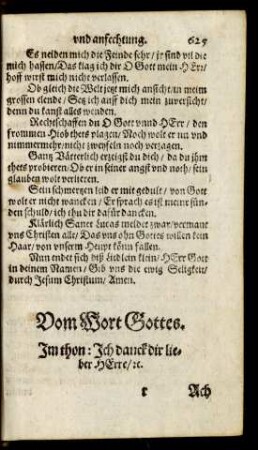 vnd anfechtung. 625
Es neiden mich die Feinde sehr / jr sind vil die
mich hassen / Das klag ich dir O Gott mein HErr /
hoff wirst mich nicht verlassen.
Ob gleich die Welt jetzt mich ansicht / in meim
grossen elende / Setz ich auff dich mein zuversicht /
denn du kanst alles wenden.
Rechtschaffen du O Gott vnnd HErr / den
frommen Hiob thets plagen / Noch wolt er nu vnd
nimmermehr / nicht zweyfeln noch verzagen.
Gantz Vätterlich erzeigst du dich / da du jhm
thets probieren / Ob er in seiner angst vnd noth / sein
glauben wolt verlieren.
Sein schmertzen leid er mit gedult / von Gott
wolt er nicht wancken / Er sprach es ist meiner sün-
den schuld / ich thu dir dafür dancken.
Klärlich Sanct Lucas meldet zwar / vermant
vns Christen alle / Das vns ohn Gottes willen kein
Haar / von vnserm Heupt könn fallen.
Nun endet sich diß Liedlein klein / HErr Gott
in deinem Namen / Gib vns die ewig Seligkeit /
durch Jesum Christum / Amen.
Vom Wort Gottes.
Im thon: Ich danck dir lie-
ber HErre / ꝛc.
r Ach